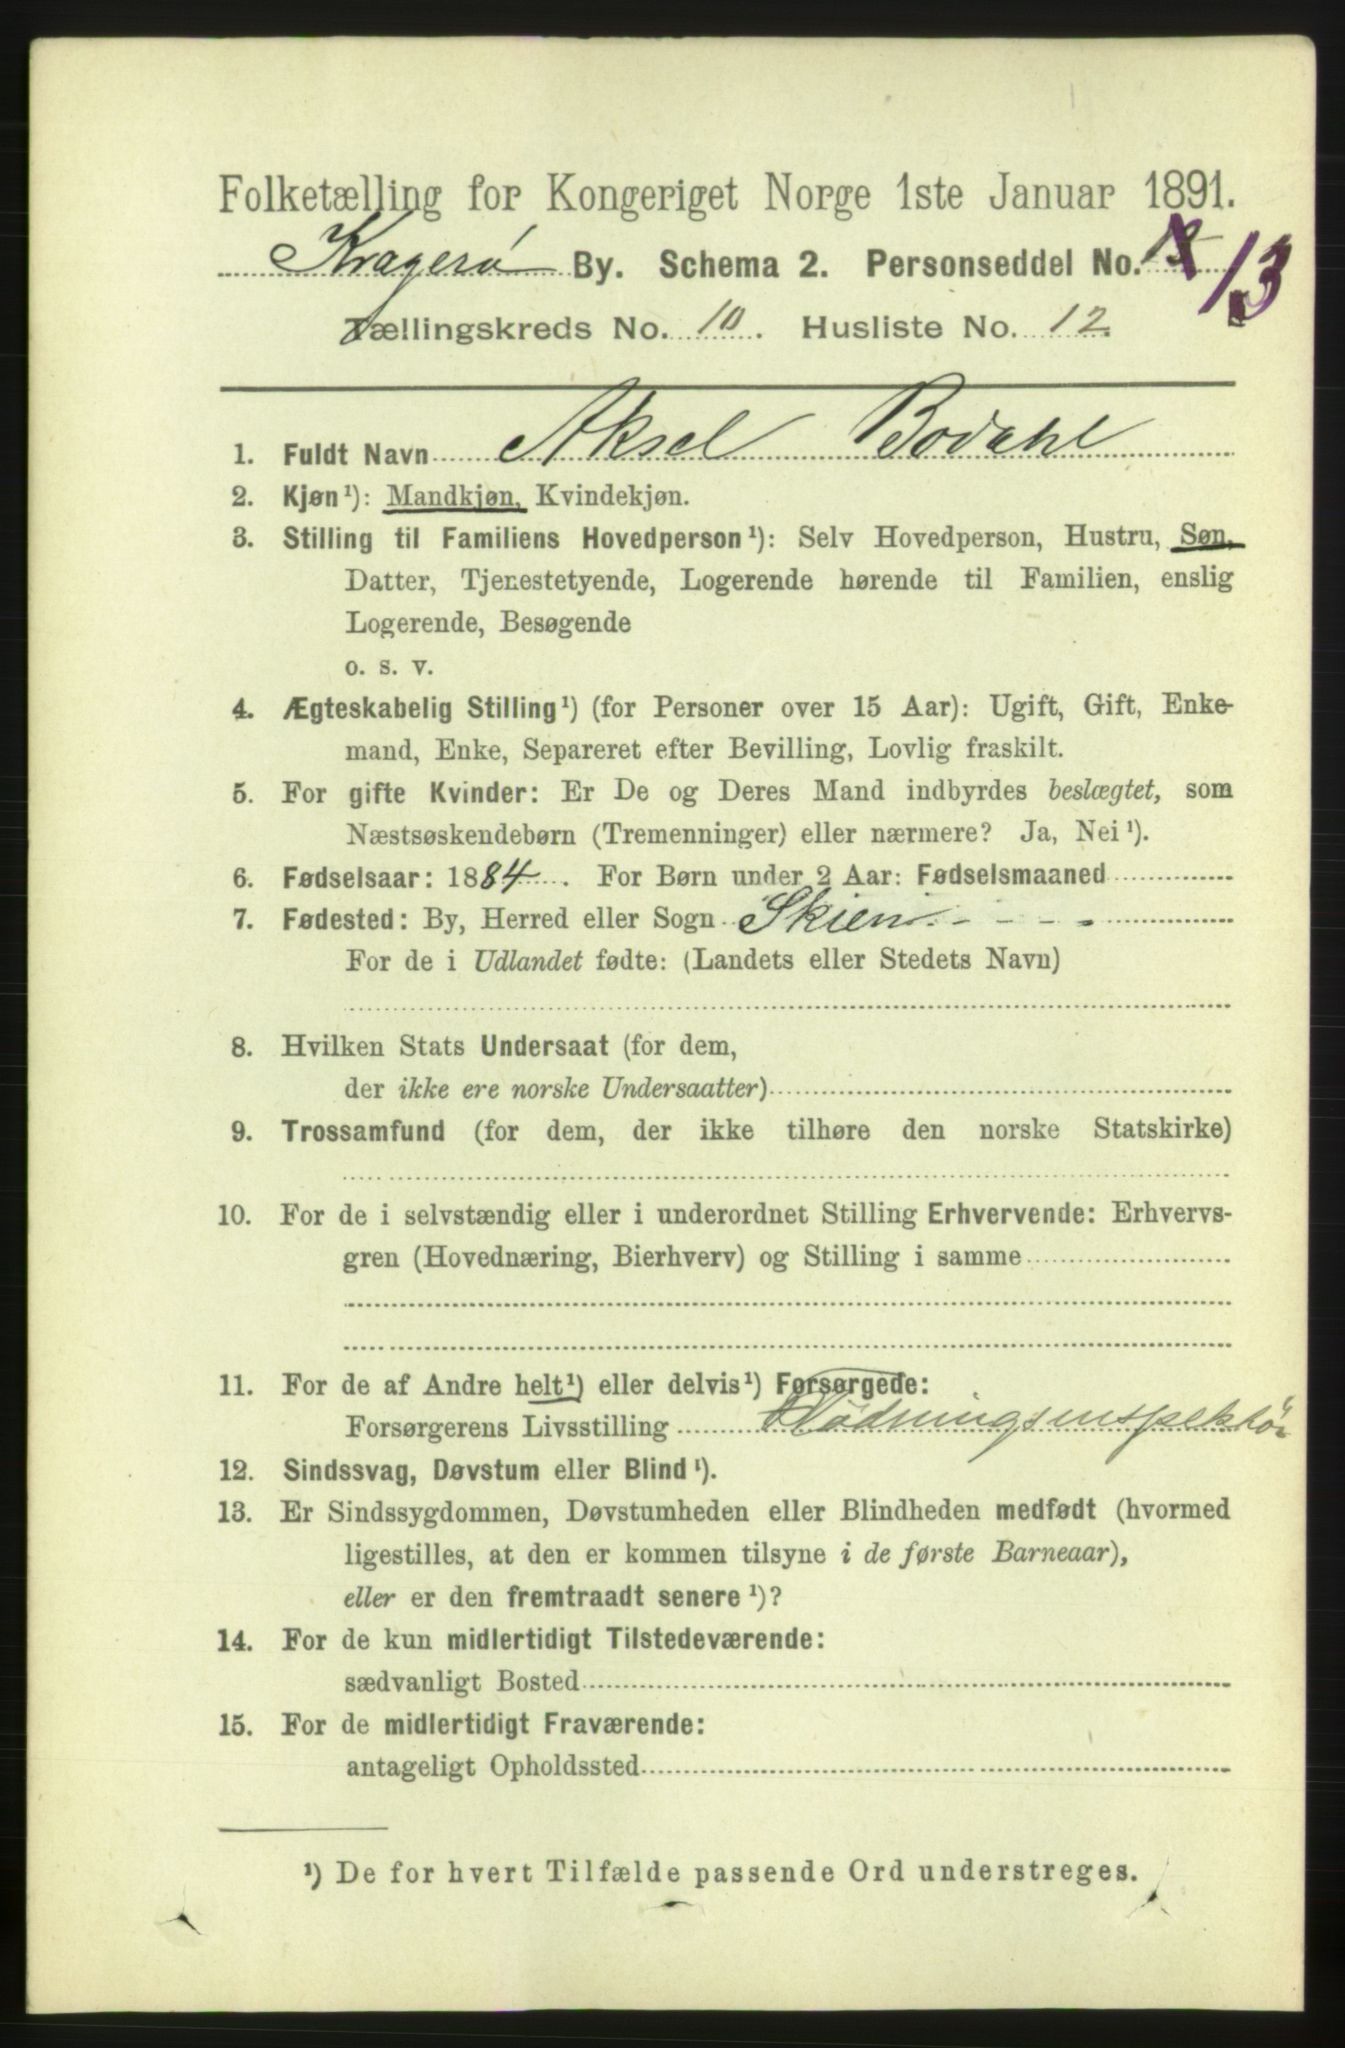 Folketælling for Kongeriget Norge 1ste Januar 1891.
Kragerø By. Schema 2. Personseddel No. 13
Tællingskreds No. 10. Husliste No. 12
1. Fuldt Navn Aksel Bodahl
2. Kjøn¹): Mandkjøn, Kvindekjøn.
3. Stilling til Familiens Hovedperson¹): Selv Hovedperson, Hustru, Søn,
Datter, Tjenestetyende, Logerende hørende til Familien, enslig
Logerende, Besøgende
o. s. v.
4. Ægteskabelig Stilling¹) (for Personer over 15 Aar): Ugift, Gift, Enke-
mand, Enke, Separeret efter Bevilling, Lovlig fraskilt.
5. For gifte Kvinder: Er De og Deres Mand indbyrdes beslægtet, som
Næstsøskendebørn (Tremenninger) eller nærmere? Ja, Nei¹).
6. Fødselsaar: 1884. For Børn under 2 Aar: Fødselsmaaned
7. Fødested: By, Herred eller Sogn Skien
For de i Udlandet fødte: (Landets eller Stedets Navn)
8. Hvilken Stats Undersaat (for dem,
der ikke ere norske Undersaatter)
9. Trossamfund (for dem, der ikke tilhøre den norske Statskirke)
10. For de i selvstændig eller i underordnet Stilling Erhvervende: Erhvervs-
gren (Hovednæring, Bierhverv) og Stilling i samme
11. For de af Andre helt¹) eller delvis¹) Forsørgede:
Forsørgerens Livsstilling Flødningsinspektør
12. Sindssvag, Døvstum eller Blind¹).
13. Er Sindssygdommen, Døvstumheden eller Blindheden medfødt (hvormed
ligestilles, at den er kommen tilsyne i de første Barneaar),
eller er den fremtraadt senere¹)?
14. For de kun midlertidigt Tilstedeværende:
sædvanligt Bosted
15. For de midlertidigt Fraværende:
antageligt Opholdssted
¹) De for hvert Tilfælde passende Ord understreges.